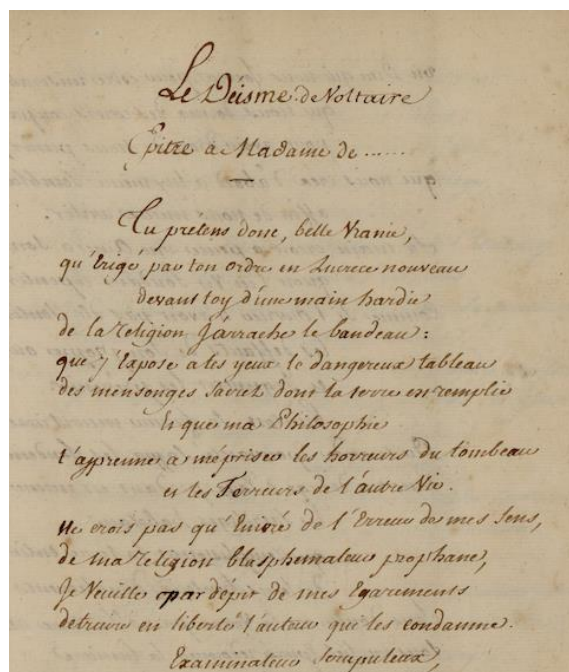 Le Déisme de Voltaire
Epitre a Madame de ......
Tu prétens donc, belle Uranie,
qu'Erigé par ton ordre en Lucrece nouveau
devant toy d'une main hardie
de la Religion J'arrache le bandeau :
que J'Expose a tes yeux le dangereux tableau
des mensonges sacrés dont la terre est remplie
Et que ma Philosophie
t'apprenne a mépriser les horreurs du tombeau
et les Terreurs de l'autre Vie.
ne crois pas qu'Enivré de l'Erreur de mes sens,
de ma Religion blasphemateur prophane,
Je Veuille par depit de mes Egarements
detruire en liberté l'auteur qui les condamne.
Examinateur scrupuleux,